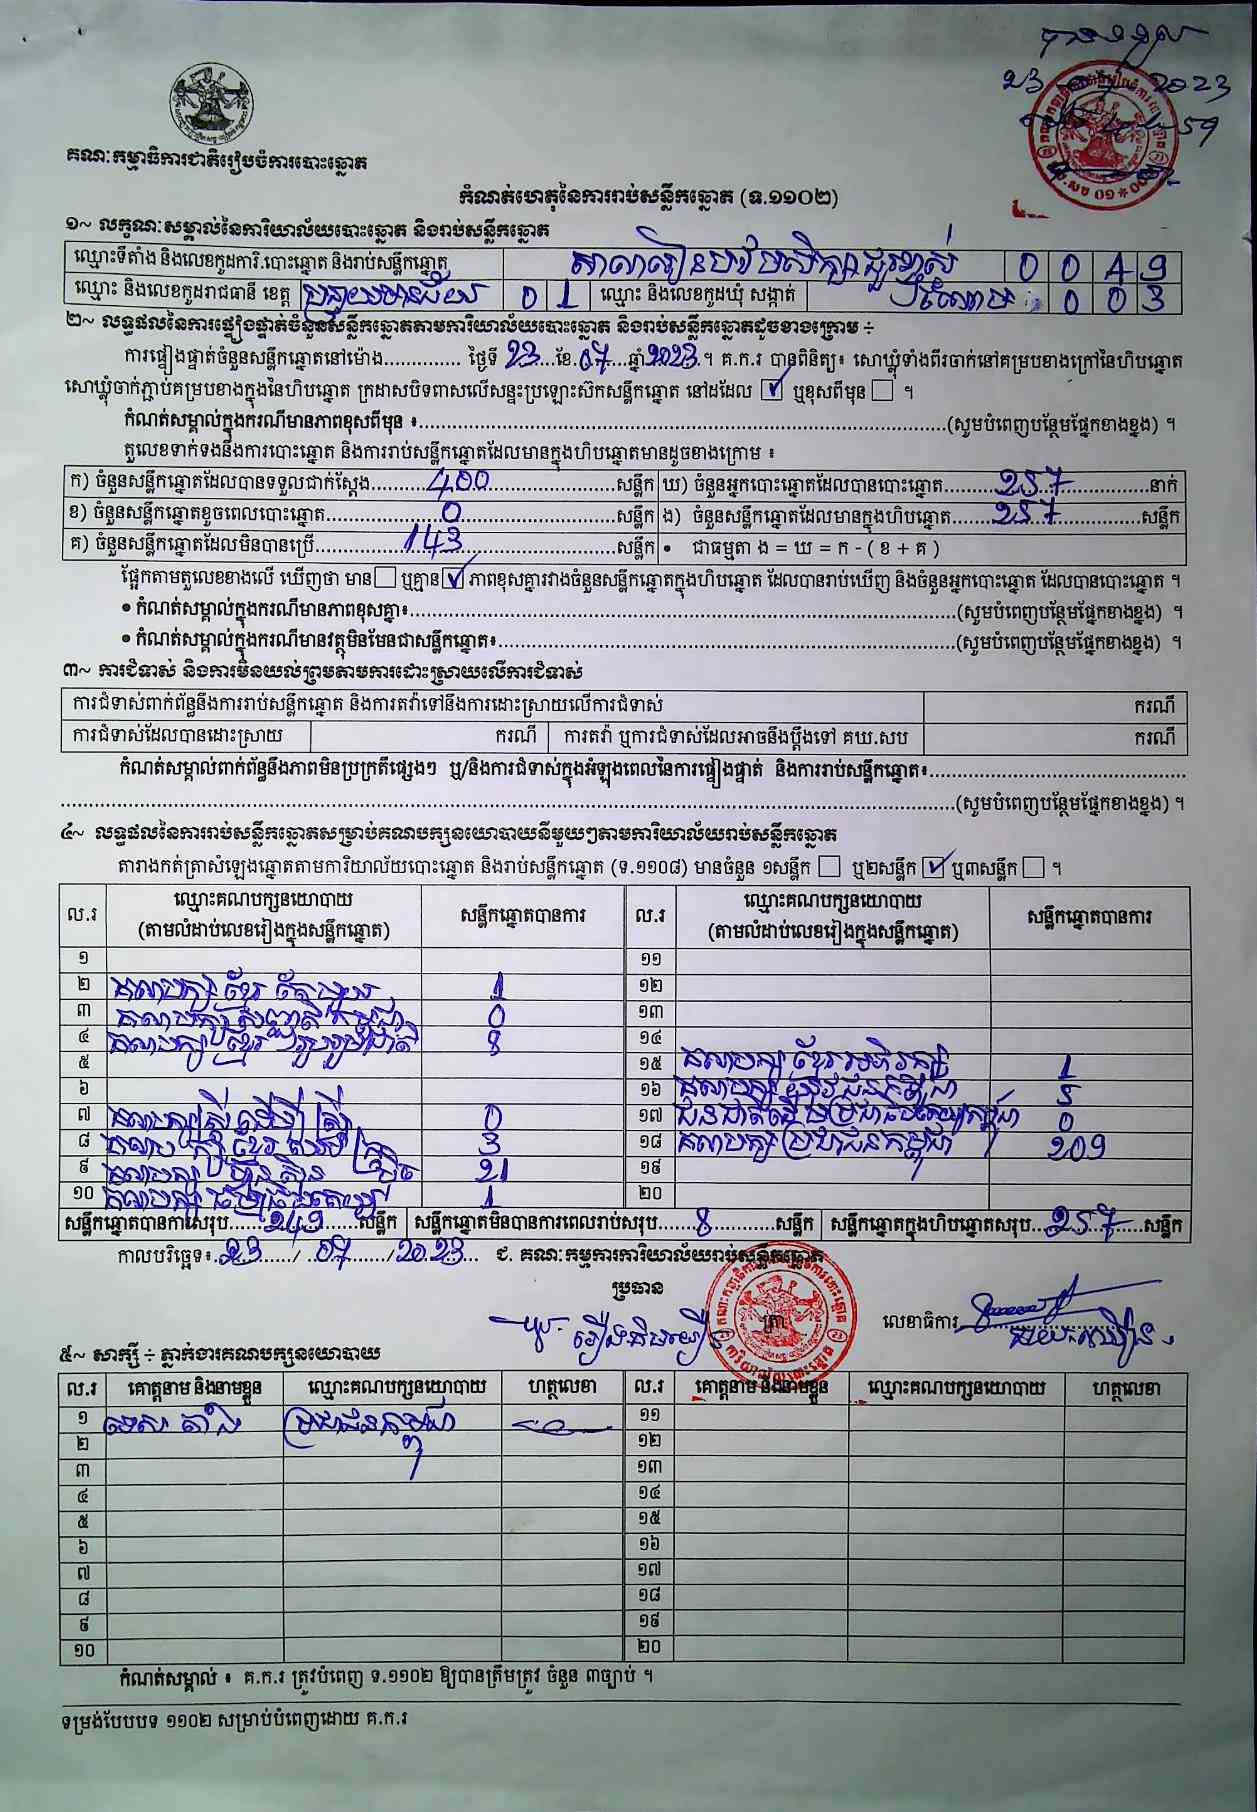 បានទទួល
23 2023
គណៈកម្មាធិការជាតិរៀបចំការបោះឆ្នោត
កំណត់ហេតុនៃការរាប់សន្លឹកឆ្នោត (ទ.១១០២)
១~ លក្ខណៈសម្គាល់នៃការិយាល័យបោះឆ្នោត និងរាប់សន្លឹកឆ្នោត
ឈ្មោះទីតាំង និងលេខកូដការិ.បោះឆ្នោត និងរាប់សន្លឹកឆ្នោត 0 0 4 9
ឈ្មោះ និងលេខកូដរាជធានី ខេត្ត បន្ទាយមានជ័យ 0 1 ឈ្មោះ និងលេខកូដឃុំ សង្កាត់ 0 0 3
២~ លទ្ធផលនៃការផ្ទៀងផ្ទាត់ចំនួនសន្លឹកឆ្នោតតាមការិយាល័យបោះឆ្នោត និងរាប់សន្លឹកឆ្នោតដូចខាងក្រោម ÷
ការផ្ទៀងផ្ទាត់ចំនួនសន្លឹកឆ្នោតនៅម៉ោង.............. ថ្ងៃទី 23 ខែ 07 ឆ្នាំ 2023 ។ គ.ក.រ បានពិនិត្យ៖ សោឃ្លុំទាំងពីរចាក់នៅគម្របខាងក្រៅនៃហិបឆ្នោត
សោឃ្លុំចាក់ភ្ជាប់គម្របខាងក្នុងនៃហិបឆ្នោត ក្រដាសបិទពាសលើសន្ទះប្រឡោះស៊កសន្លឹកឆ្នោត នៅដដែល ☑ ឬខុសពីមុន ☐ ។
កំណត់សម្គាល់ក្នុងករណីមានភាពខុសពីមុន ៖..............(សូមបំពេញបន្ថែមផ្នែកខាងខ្នង) ។
តួលេខទាក់ទងនឹងការបោះឆ្នោត និងការរាប់សន្លឹកឆ្នោតដែលមានក្នុងហិបឆ្នោតមានដូចខាងក្រោម ៖
ក) ចំនួនសន្លឹកឆ្នោតដែលបានទទួលជាក់ស្តែង 400 សន្លឹក ឃ) ចំនួនអ្នកបោះឆ្នោតដែលបានបោះឆ្នោត 257 នាក់
ខ) ចំនួនសន្លឹកឆ្នោតខូចពេលបោះឆ្នោត 0 សន្លឹក ង) ចំនួនសន្លឹកឆ្នោតដែលមានក្នុងហិបឆ្នោត 257 សន្លឹក
គ) ចំនួនសន្លឹកឆ្នោតដែលមិនបានប្រើ 143 សន្លឹក • ជាធម្មតា ង = ឃ = ក - ( ខ + គ )
ផ្អែកតាមតួលេខខាងលើ ឃើញថា មាន ☐ ឬគ្មាន ☑ ភាពខុសគ្នារវាងចំនួនសន្លឹកឆ្នោតក្នុងហិបឆ្នោត ដែលបានរាប់ឃើញ និងចំនួនអ្នកបោះឆ្នោត ដែលបានបោះឆ្នោត ។
• កំណត់សម្គាល់ក្នុងករណីមានភាពខុសគ្នា៖..............(សូមបំពេញបន្ថែមផ្នែកខាងខ្នង) ។
• កំណត់សម្គាល់ក្នុងករណីមានវត្ថុមិនមែនជាសន្លឹកឆ្នោត៖..............(សូមបំពេញបន្ថែមផ្នែកខាងខ្នង) ។
៣~ ការជំទាស់ និងការមិនយល់ព្រមតាមការដោះស្រាយលើការជំទាស់
ការជំទាស់ពាក់ព័ន្ធនឹងការរាប់សន្លឹកឆ្នោត និងការតវ៉ាទៅនឹងការដោះស្រាយលើការជំទាស់ ករណី
ការជំទាស់ដែលបានដោះស្រាយ ករណី ការតវ៉ា ឬការជំទាស់ដែលអាចនឹងប្តឹងទៅ គឃ.សប ករណី
កំណត់សម្គាល់ពាក់ព័ន្ធនឹងភាពមិនប្រក្រតីផ្សេងៗ ឬ/និងការជំទាស់ក្នុងអំឡុងពេលនៃការផ្ទៀងផ្ទាត់ និងការរាប់សន្លឹកឆ្នោត៖..............
..............(សូមបំពេញបន្ថែមផ្នែកខាងខ្នង) ។
៤~ លទ្ធផលនៃការរាប់សន្លឹកឆ្នោតសម្រាប់គណបក្សនយោបាយនីមួយៗតាមការិយាល័យរាប់សន្លឹកឆ្នោត
តារាងកត់ត្រាសំឡេងឆ្នោតតាមការិយាល័យបោះឆ្នោត និងរាប់សន្លឹកឆ្នោត (ទ.១១០៨) មានចំនួន ១សន្លឹក ☐ ឬ២សន្លឹក ☑ ឬ៣សន្លឹក ☐ ។
ល.រ ឈ្មោះគណបក្សនយោបាយ (តាមលំដាប់លេខរៀងក្នុងសន្លឹកឆ្នោត) សន្លឹកឆ្នោតបានការ ល.រ ឈ្មោះគណបក្សនយោបាយ (តាមលំដាប់លេខរៀងក្នុងសន្លឹកឆ្នោត) សន្លឹកឆ្នោតបានការ
១ ១១
២ គណបក្ស ខ្មែរ តែមួយ 1 ១២
៣ 0 ១៣
៤ គណបក្ស ខ្មែរ រួបរួមជាតិ 8 ១៤
៥ ១៥ គណបក្ស ខ្មែរ អភិរក្ស 1
៦ ១៦ 5
៧ គណបក្ស ស្ត្រី ដើម្បី ស្ត្រី 0 ១៧ 0
៨ 3 ១៨ គណបក្ស ប្រជាជនកម្ពុជា 209
៩ 21 ១៩
១០ 1 ២០
សន្លឹកឆ្នោតបានការសរុប 249 សន្លឹក សន្លឹកឆ្នោតមិនបានការពេលរាប់សរុប 8 សន្លឹក សន្លឹកឆ្នោតក្នុងហិបឆ្នោតសរុប 257 សន្លឹក
កាលបរិច្ឆេទ៖ 23 / 07 / 2023 ជ. គណៈកម្មការការិយាល័យរាប់សន្លឹកឆ្នោត
ប្រធាន ត្រា លេខាធិការ
៥~ សាក្សី ÷ ភ្នាក់ងារគណបក្សនយោបាយ
ល.រ គោត្តនាម និងនាមខ្លួន ឈ្មោះគណបក្សនយោបាយ ហត្ថលេខា ល.រ គោត្តនាម និងនាមខ្លួន ឈ្មោះគណបក្សនយោបាយ ហត្ថលេខា
១ ប្រជាជនកម្ពុជា ១១
២ ១២
៣ ១៣
៤ ១៤
៥ ១៥
៦ ១៦
៧ ១៧
៨ ១៨
៩ ១៩
១០ ២០
កំណត់សម្គាល់ ៖ គ.ក.រ ត្រូវបំពេញ ទ.១១០២ ឱ្យបានត្រឹមត្រូវ ចំនួន ៣ច្បាប់ ។
ទម្រង់បែបបទ ១១០២ សម្រាប់បំពេញដោយ គ.ក.រ